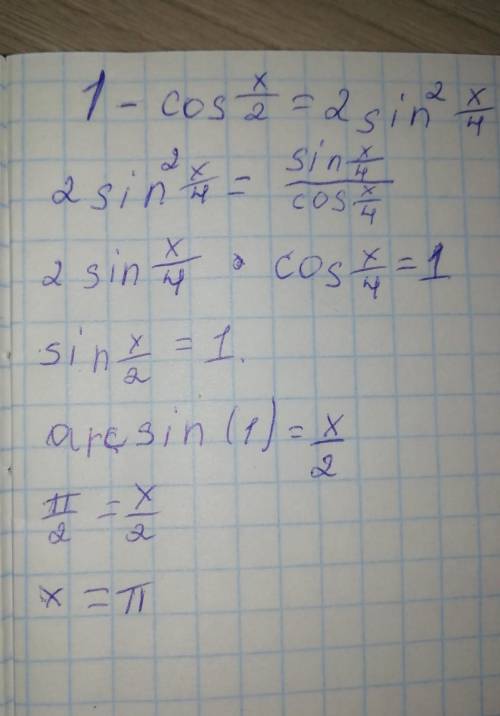 1 - cos x/2 = 2 sin² x/4
2 sin² x/4 = sin x/4 / cos x/4
2 sin x/4 · cos x/4 = 1
sin x/2 = 1.
arcsin (1) = x/2
π/2 = x/2
x = π